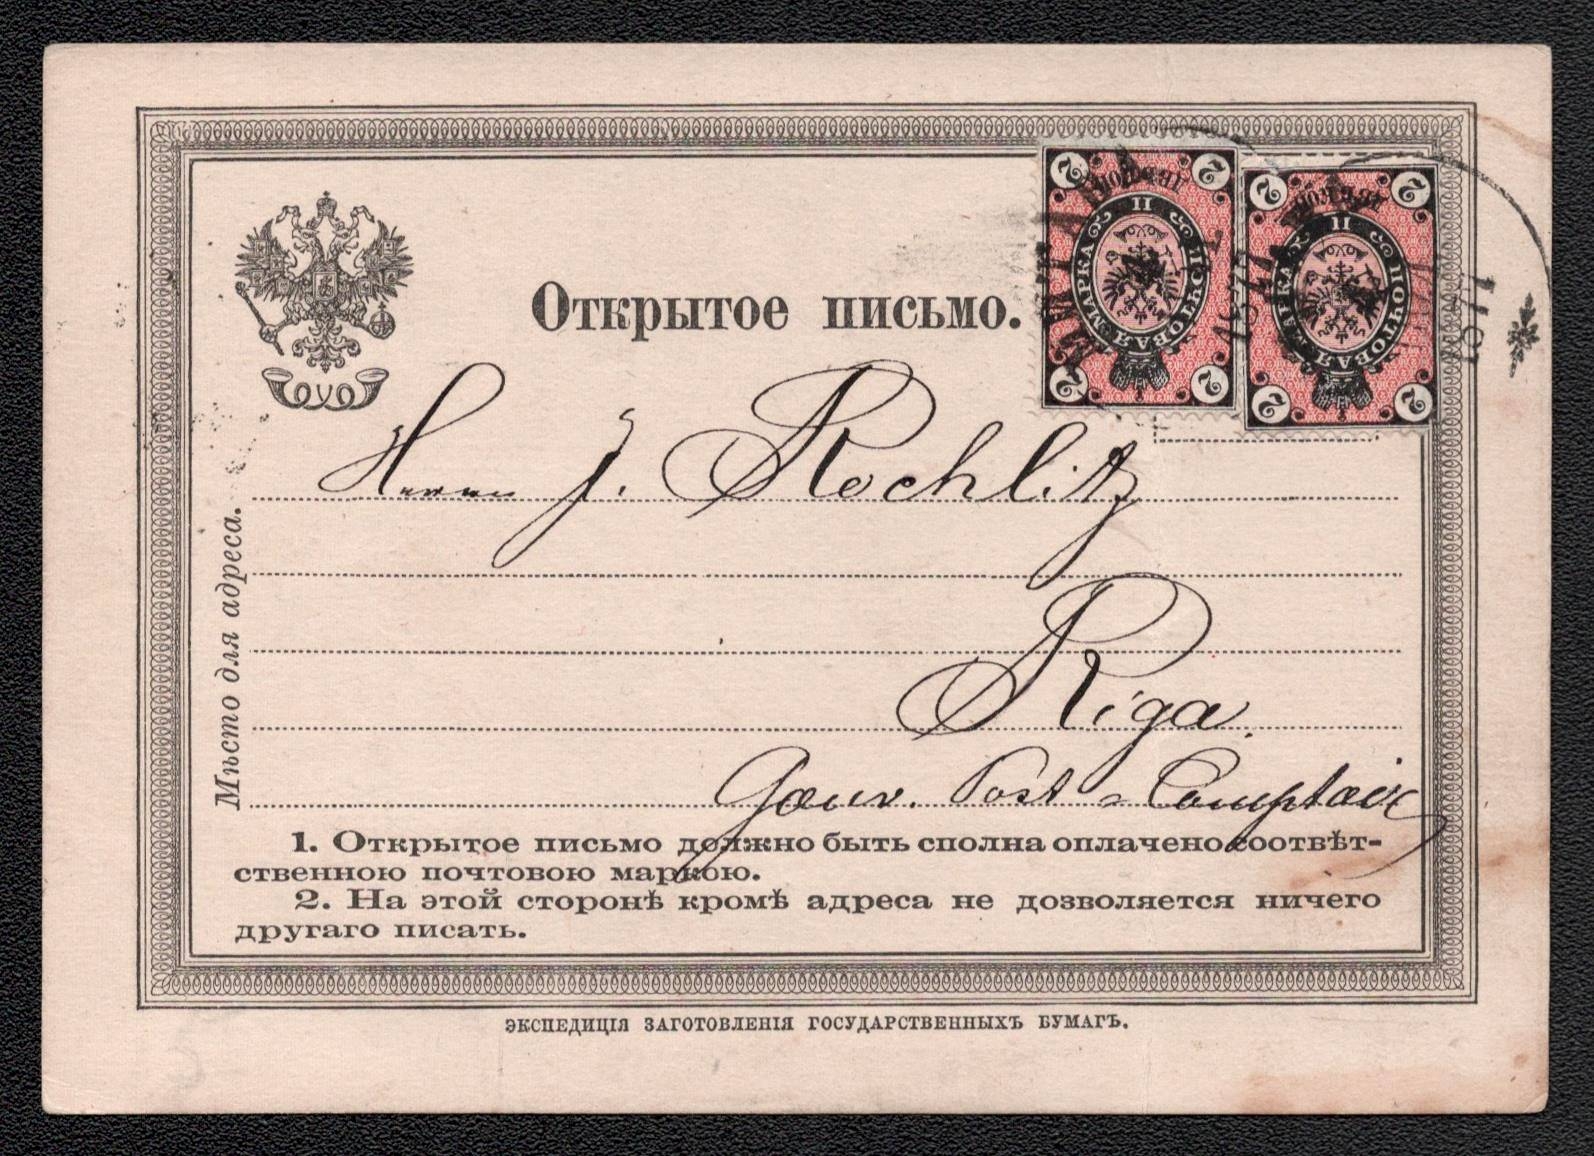 Открытое письмо.
2 2 2 2
П ПОЧТОВАЯ МАРКА
2 2 2 2
П ПОЧТОВАЯ МАРКА
1877
1877
Herrn J. Rochlitz
Riga.
Gouv. Post-Comptoir
Мѣсто для адреса.
1. Открытое письмо должно быть сполна оплачено соотвѣт-
ственною почтовою маркою.
2. На этой сторонѣ кромѣ адреса не дозволяется ничего
другаго писать.
ЭКСПЕДИЦІЯ ЗАГОТОВЛЕНІЯ ГОСУДАРСТВЕННЫХЪ БУМАГЪ.